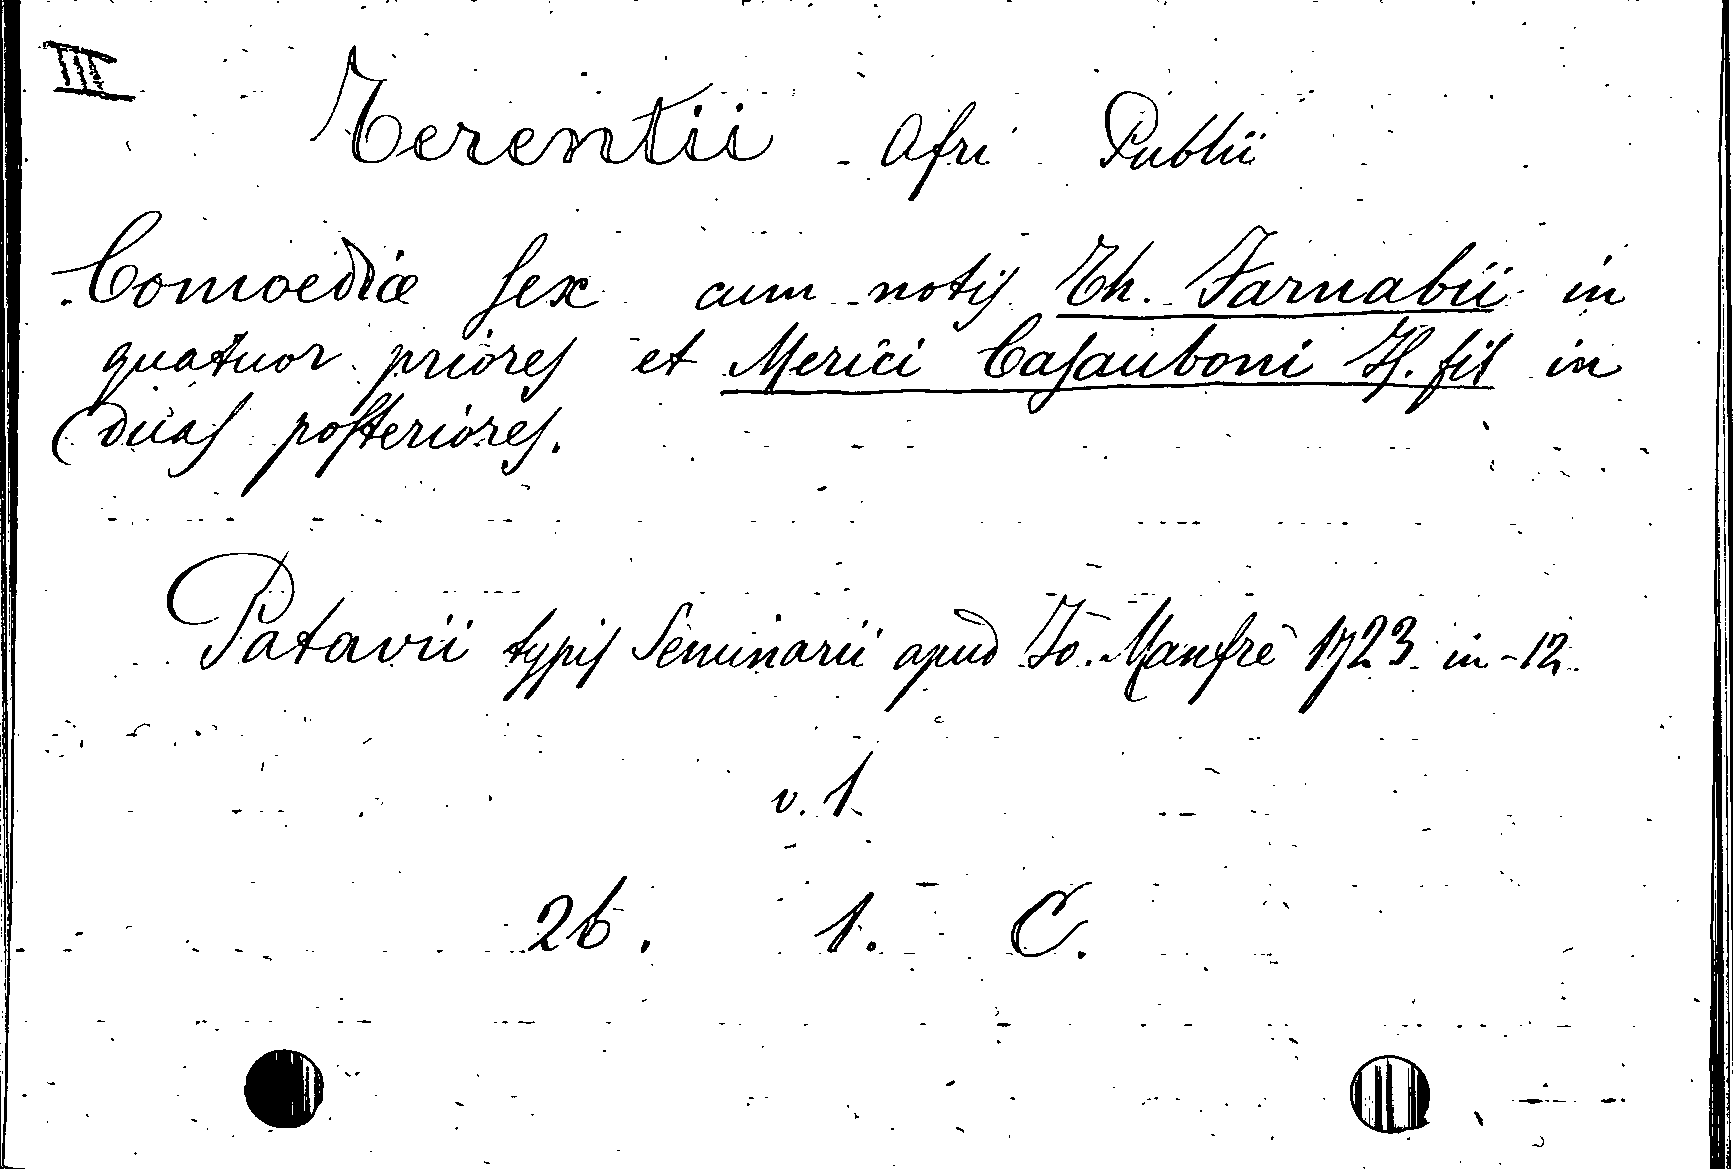 III
Terentii Afri Publii
Comoediæ sex cum notis Th. Farnabii in
quatuor priores et Merici Casauboni Is. fil in
duas posteriores.
Patavii typis Seminarii apud Jo. Manfrè 1723 in-12.
v. 1
26. 1. C.